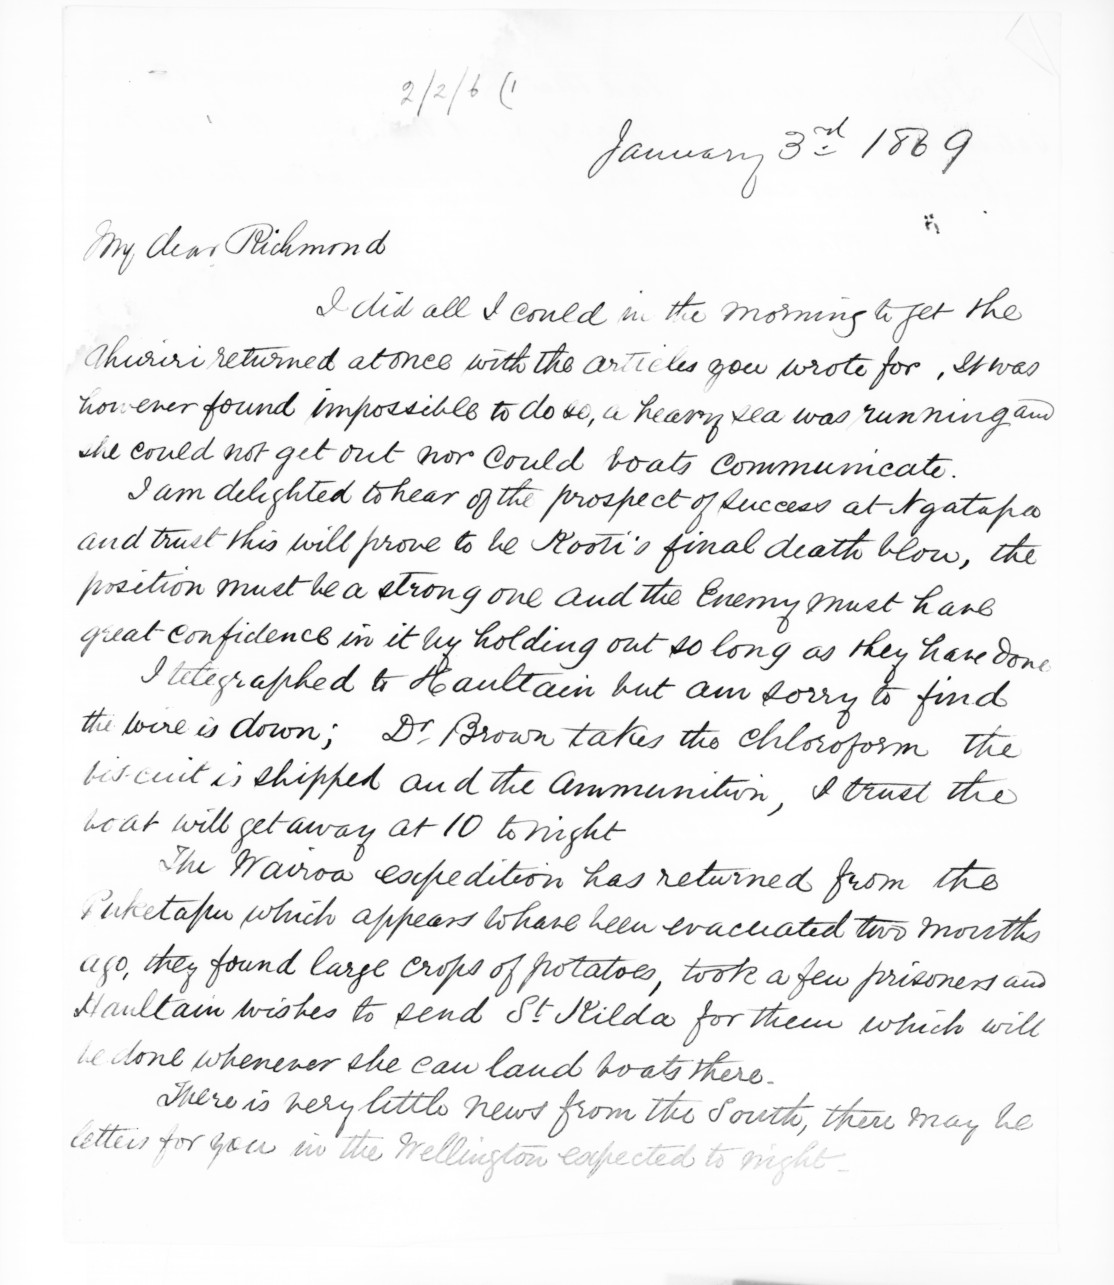 2/2/6 (1
January 3rd 1869
My dear Richmond
I did all I could in the morning to get the
Ahuriri returned at once with the articles you wrote for, It was
however found impossible to do so, a heavy sea was running and
she could not get out nor could boats communicate.
I am delighted to hear of the prospect of success at Ngatapa
and trust this will prove to be Kooti's final death blow, the
position must be a strong one and the Enemy must have
great confidence in it by holding out so long as they have done
I telegraphed to Haultain but am sorry to find
the wire is down; Dr. Brown takes the Chloroform the
biscuit is shipped and the Ammunition, I trust the
boat will get away at 10 tonight
The Wairoa expedition has returned from the
Puketapu which appears to have been evacuated two months
ago, they found large crops of potatoes, took a few prisoners and
Haultain wishes to send St. Kilda for them which will
be done whenever she can land boats there.
There is very little news from the South, there may be
letters for you in the Wellington expected to night -